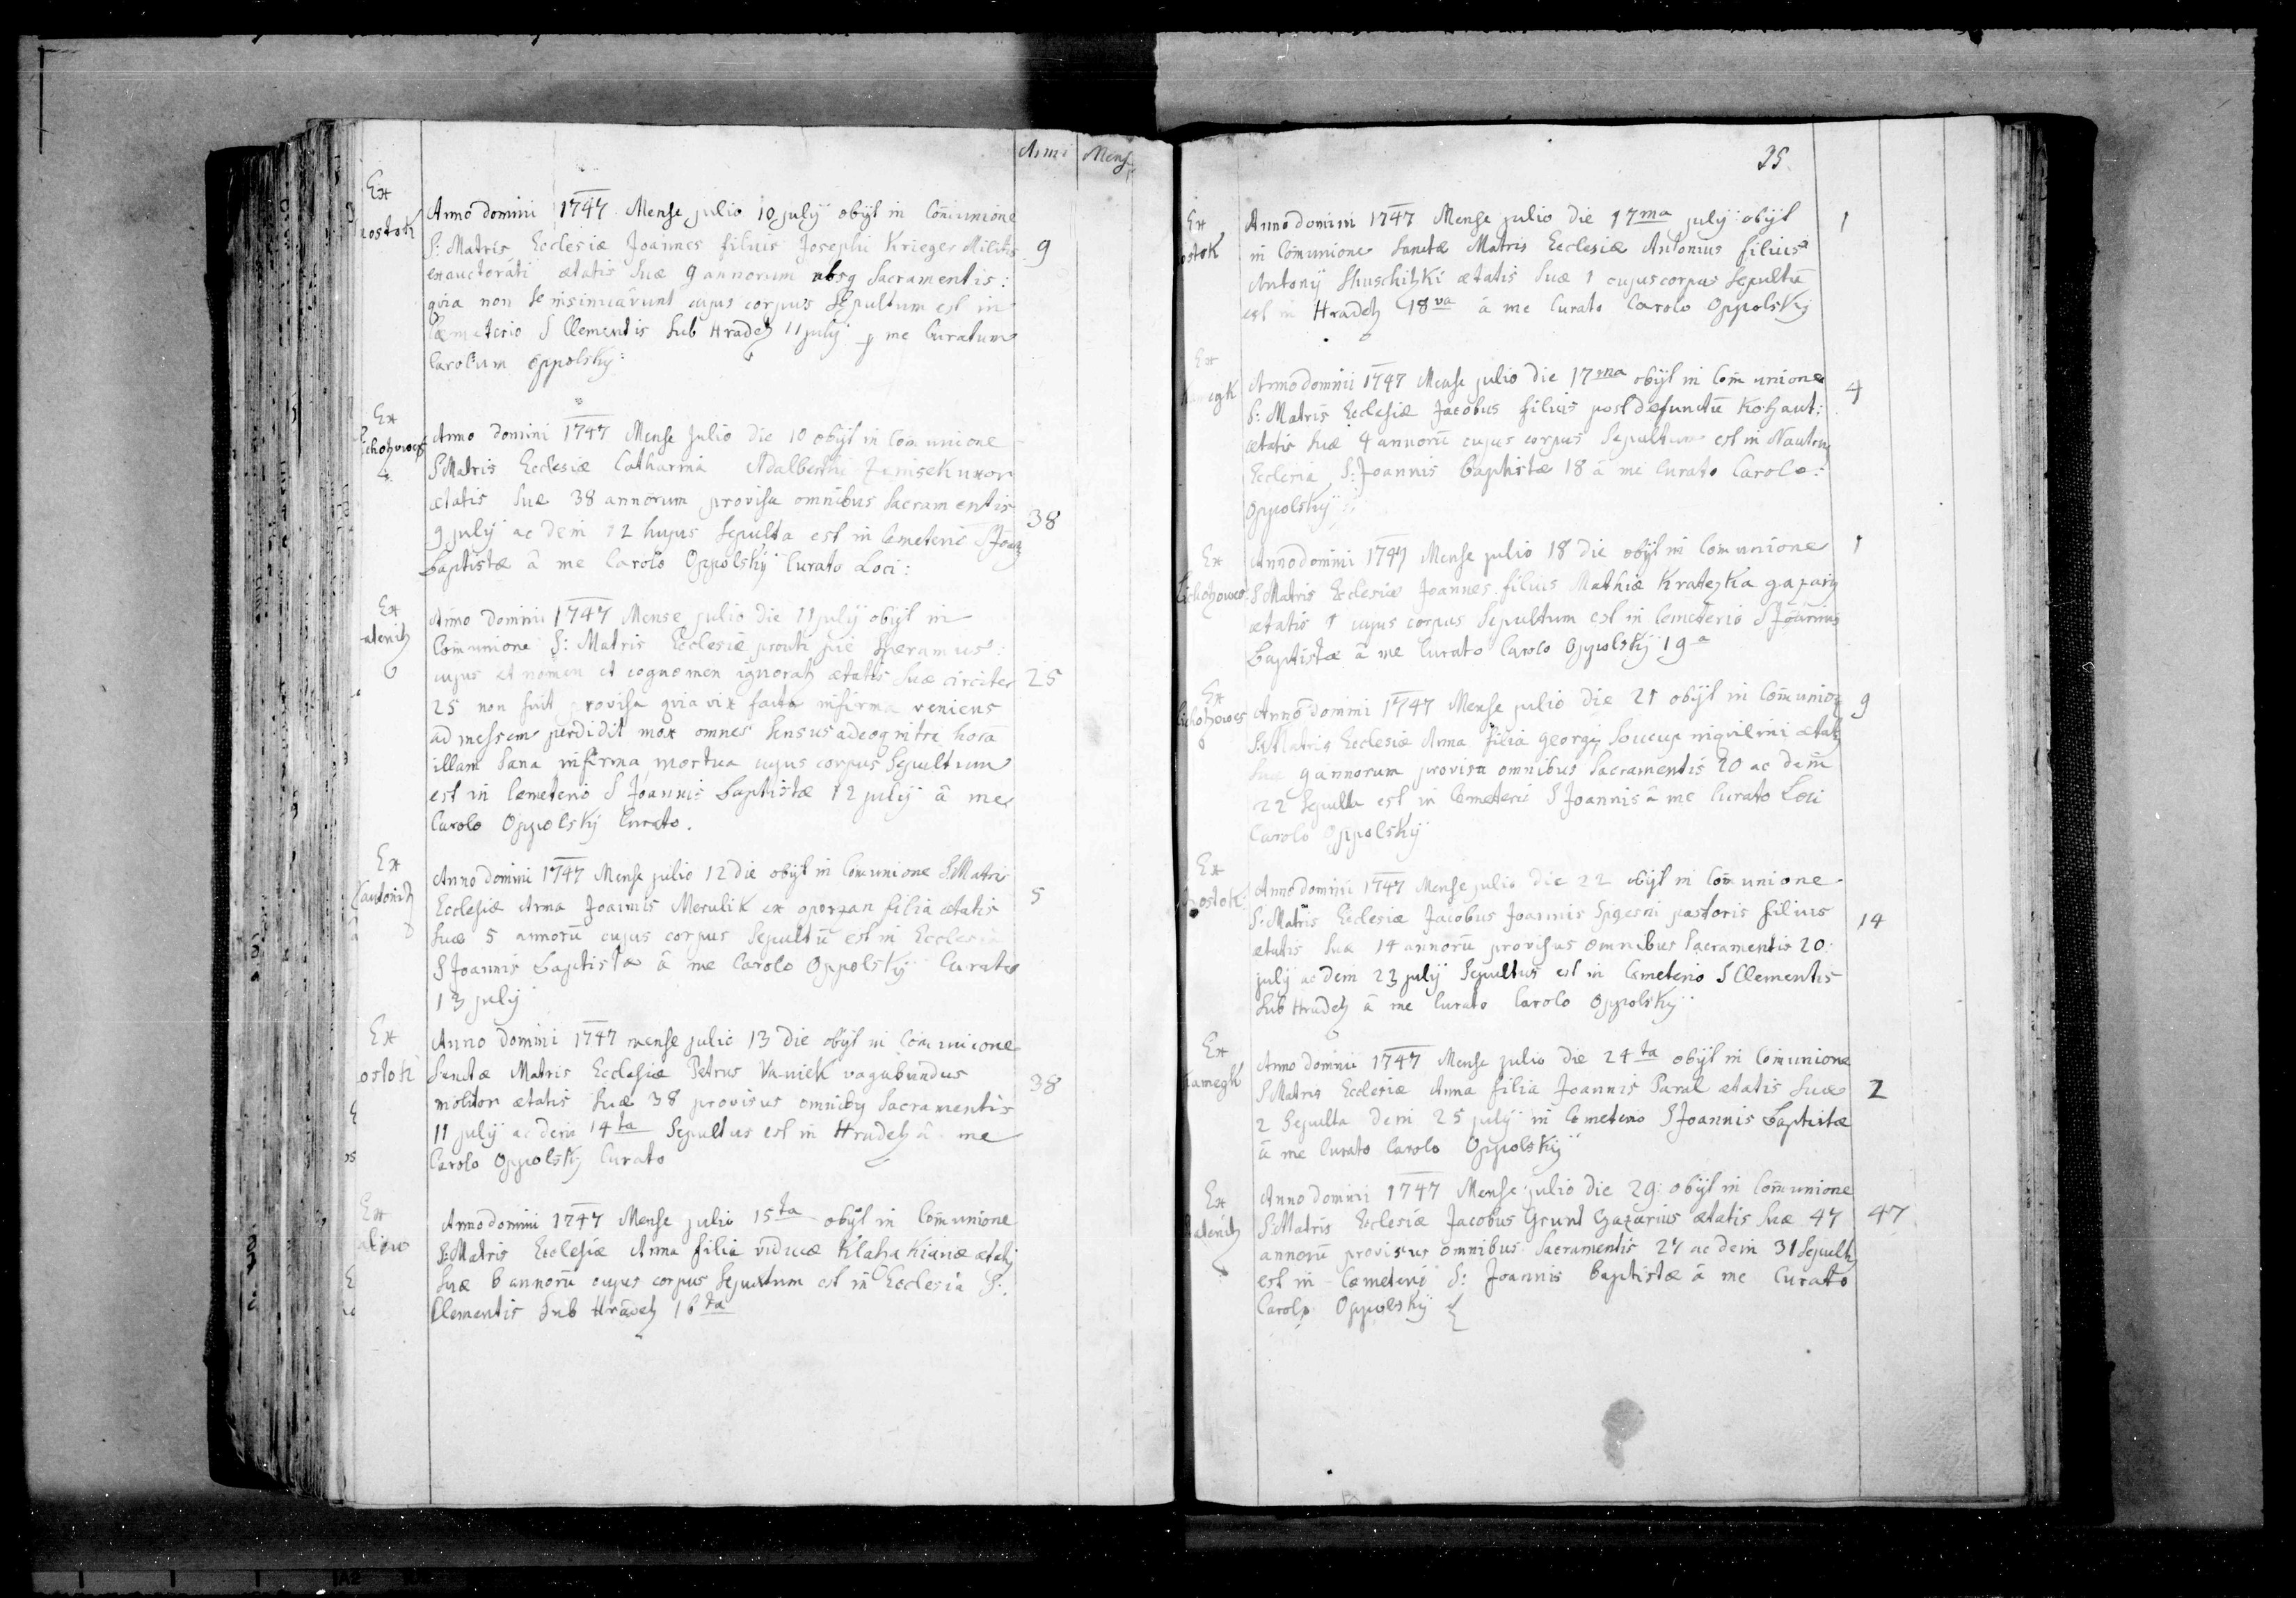 Anni Mens
Ex
ostok
Anno domini 1747 Mense julio 10 july obijt in Comunione
S: Matris Ecclesiæ Joannes filius Josephi Krieger Militis
exauctorati ætatis suæ 9 annorum absq Sacramentis:
qvia non se insinuarunt cujus corpus Sepultum est in
Cæmeterio S Clementis Sub Hradetz 11 july p me Curatum
Carolum Oppolsky:
9
Ex
Anno domini 1747 Mense julio die 10 obijt in Comunione
S Matris Ecclesiæ Catharina Adalberthi Janisek uxor
ætatis Suæ 38 annorum provisa omnibus Sacramentis
9 july ac dein 12 hujus Sepulta est in Cemeterio S Joan
Baptistæ â me Carolo Oppolsky Curato Loci:
38
Ex
atenitz
Anno domini 1747 Mense julio die 11 july obijt in
Comunione S: Matris Ecclesiæ prouti pie Speramus:
cujus et nomen et cognomen ignorat ætatis Suæ circiter
25 non fuit provisa qvia vix facta infirma veniens
ad messem perdidit mox omnes Sensus adeoq intra hora
illam Sana infirma mortua cujus corpus Sepultum
est in Cemeterio S Joannis Baptistæ 12 july â me
Carolo Oppolsky Curato.
25
Ex
autonitz
Anno domini 1747 Mense julio 12 die obijt in Comunione S Matris
Ecclesiæ Anna Joannis Merulik ex oporzan filia ætatis
Suæ 5 annorū cujus corpus Sepultū est in Ecclesia
S Joannis Baptistæ â me Carolo Oppolsky Curato
13 july
5
Ex
ostok
Anno domini 1747 mense julio 13 die obijt in Comunione
Sanctæ Matris Ecclesiæ Petrus Vaniek vagabundus
molitor ætatis Suæ 38 provisus omnibq Sacramentis
11 july ac dein 14ta Sepultus est in Hradetz â me
Carolo Oppolsky Curato
38
Ex
Anno domini 1747 Mense julio 15ta obijt in Comunione
S: Matris Ecclesiæ Anna filia viduæ Klahakianæ ætatis
Suæ 6 annorū cujus corpus Sepultum est in Ecclesia S:
Clementis Sub Hradetz 16ta
35
Ex
ostok
Anno domini 1747 Mense julio die 17ma july obijt
in Comunione Sanctæ Matris Ecclesiæ Antonius filius
Antonij Shuschitzki ætatis Suæ 1 cujus corpus Sepultū
est in Hradetz 18va â me Curato Carolo Oppolsky
1
Ex
Kamegk
Anno domini 1747 Mense julio die 17ma obijt in Comunione
S: Matris Ecclesiæ Jacobus filius post defunctū Kohaut:
ætatis Suæ 4 annorū cujus corpus Sepultum est in
Ecclesia S: Joannis Baptistæ 18 â me Curato Carolo:
Oppolsky
4
Ex
Anno domini 1747 Mense julio 18 die obijt in Comunione
S Matris Ecclesiæ Joannes filius Mathiæ Kratezka gazarij
ætatis 1 cujus corpus Sepultum est in Cemeterio S Joannis
Baptistæ â me Curato Carolo Oppolsky 19a
1
Ex
Anno domini 1747 Mense julio die 21 obijt in Comunio
S: Matris Ecclesiæ Anna filia georgij Soucup inqvilini ætat
Suæ 9 annorum provisa omnibus Sacramentis 20 ac dein
22 Sepulta est in Cemeterio S Joannis â me Curato Loci
Carolo Oppolsky
9
Ex
ostok
Anno domini 1747 Mense julio die 22 obijt in Comunione
S: Matris Ecclesiæ Jacobus Joannis pastoris filius
ætatis Suæ 14 annorū provisus omnibus Sacramentis 20
july ac dein 23 july Sepultus est in Cemeterio S Clementis
Sub Hradetz â me Curato Carolo Oppolsky
14
Ex
Kamegk
Anno domini 1747 Mense julio die 24ta obijt in Comunione
S Matris Ecclesiæ Anna filia Joannis Paral ætatis Suæ
2 Sepulta dein 25 july in Cemeterio S Joannis Baptistæ
â me Curato Carolo Oppolsky
2
Ex
atenitz
Anno domini 1747 Mense julio die 29 obijt in Comunione
S: Matris Ecclesiæ Jacobus Grunt Gazarius ætatis Suæ 47
annorū provisus omnibus Sacramentis 27 ac dein 31 Sepult
est in Cemeterio S: Joannis Baptistæ â me Curato
Carolo Oppolsky
47